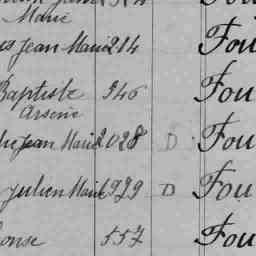 Marie
Jean Marie 214 Fou
Baptiste 946 Fou
Arsène
Jean Marie 2028 D. Fou
Julien Marie 1979 D Fou
537 Fou